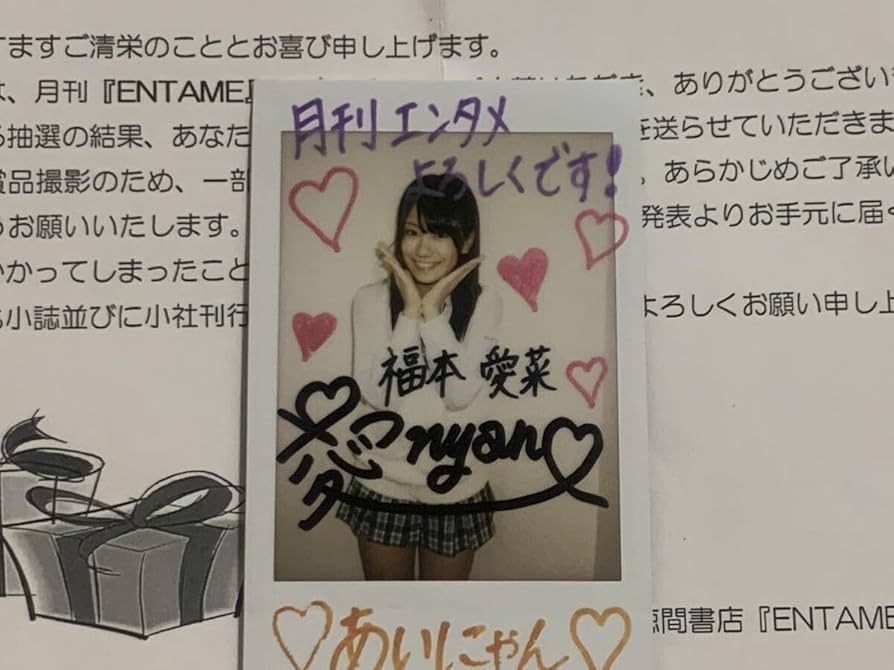 ますご清栄のこととお喜び申し上げます。
、月刊『ENTAME』
、ありがとうござい
抽選の結果、あなた
を送らせていただきま
賞品撮影のため、一部
、あらかじめご了承い
うお願いいたします。
発表よりお手元に届く
かかってしまったこと
小誌並びに小社刊行
よろしくお願い申し上
月刊エンタメ
よろしくです!
福本 愛菜
愛nyan
あいにゃん
間書店『ENTAME